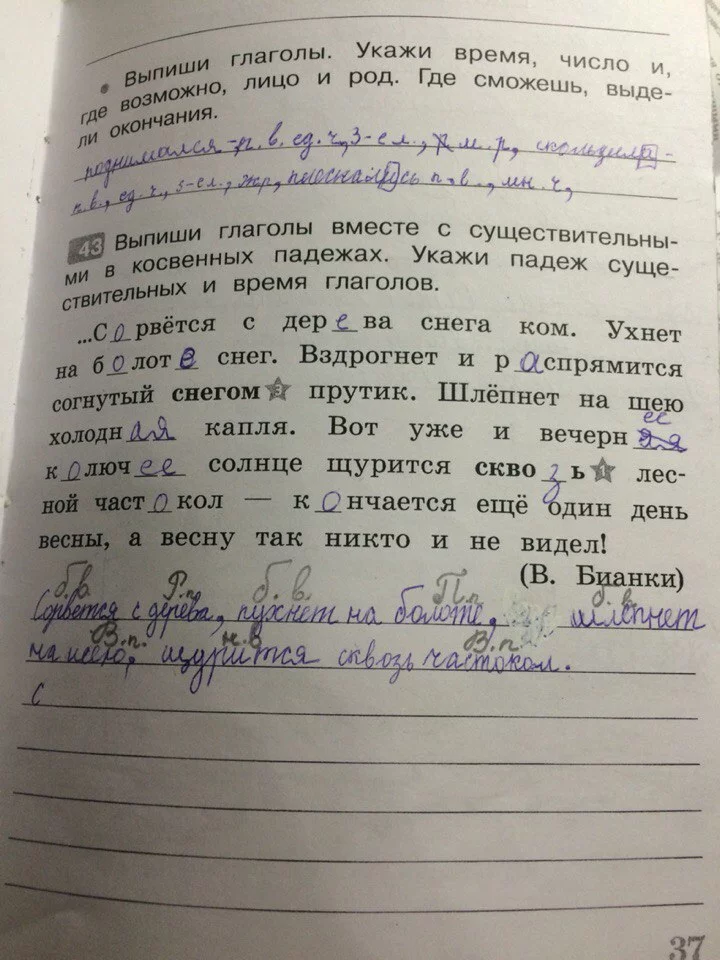 • Выпиши глаголы. Укажи время, число и,
где возможно, лицо и род. Где сможешь, выде-
ли окончания.
поднимался - п.в. ед.ч, 3-е л., м.р, скользила -
п.в., ед.ч, 3-е л., ж.р, сь п.в., мн.ч,
43 Выпиши глаголы вместе с существительны-
ми в косвенных падежах. Укажи падеж суще-
ствительных и время глаголов.
...Сорвётся с дерева снега ком. Ухнет
на болоте снег. Вздрогнет и распрямится
согнутый снегом 3 прутик. Шлёпнет на шею
ее
холодная капля. Вот уже и вечерн
колючее солнце щурится сквозь 1 лес-
ной частокол — кончается ещё один день
весны, а весну так никто и не видел!
(В. Бианки)
б.в. Р.п б.в. П.п б.в.
Сорвется с дерева, пухнет на болоте, шлёпнет
В.п. н.в В.п
на шею, щурится сквозь частокол.
с
37